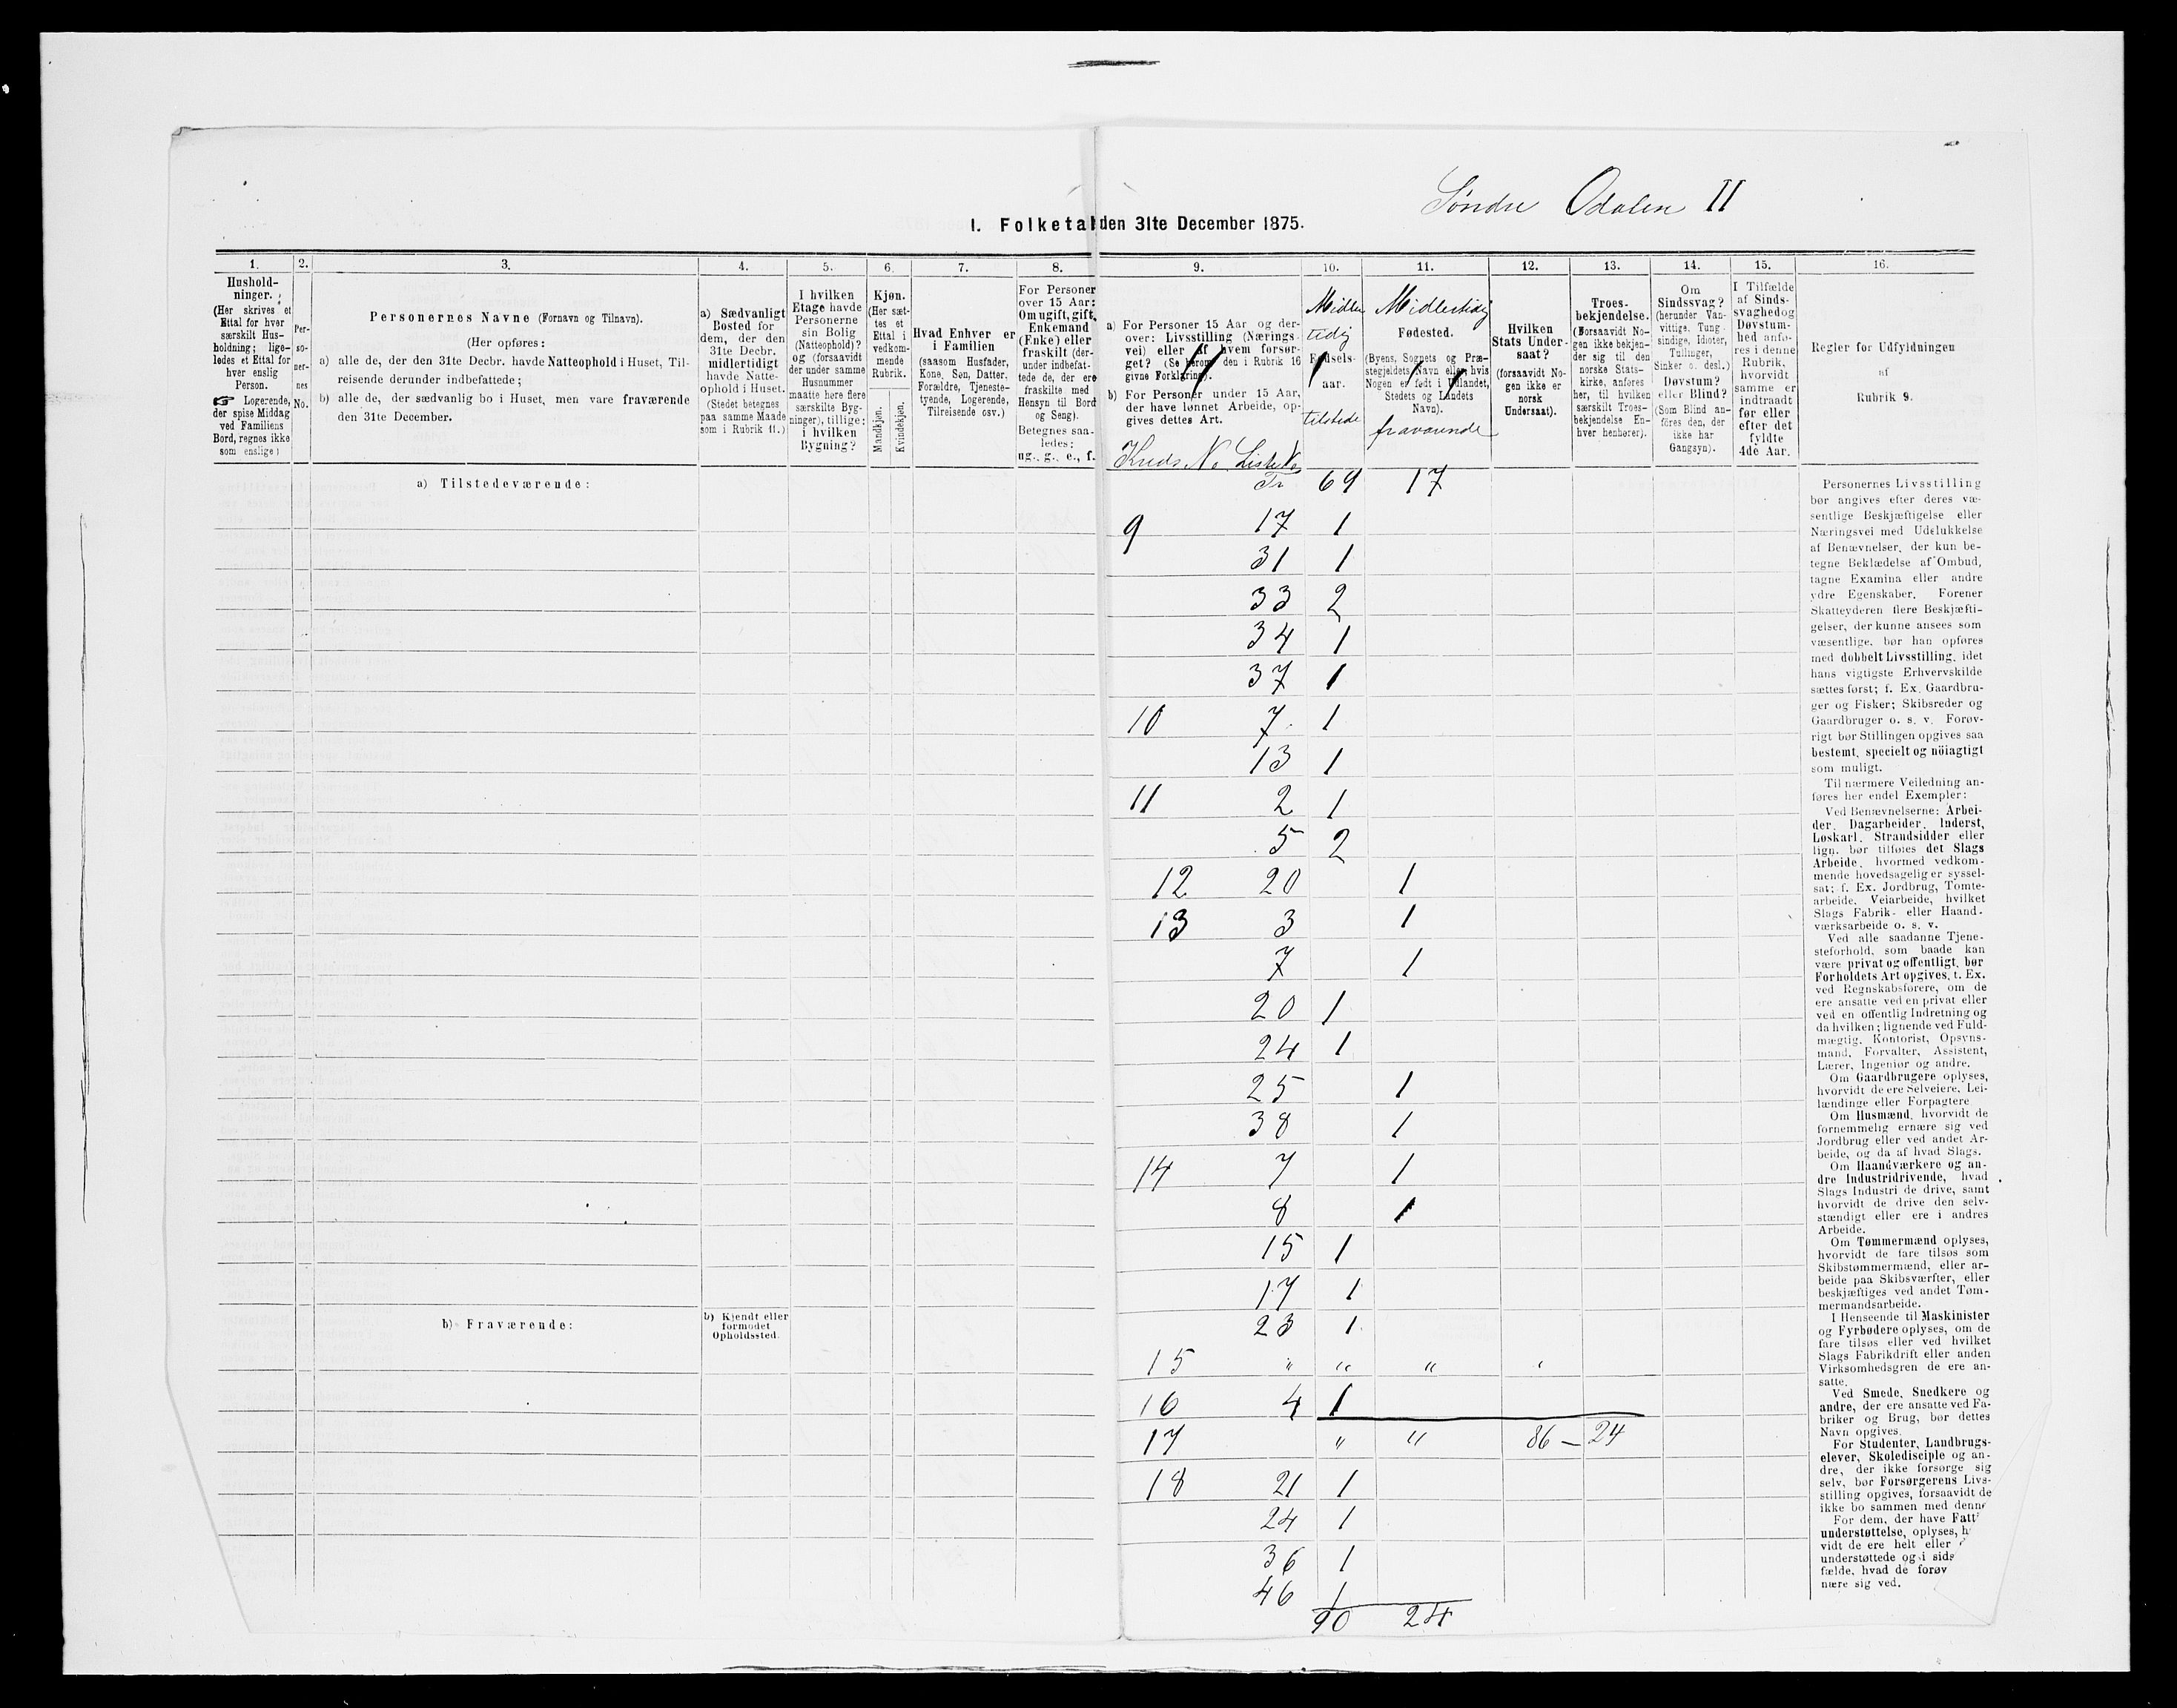 Søndre Odalen II
I. Folketal den 31te December 1875.
1.
Hushold-
ninger.
(Her skrives et
Ettal for hver
særskilt Hus-
holdning; lige-
ledes et Ettal for
hver enslig
Person.
☞ Logerende,
der spise Middag
ved Familiens
Bord, regnes ikke
som enslige)
2.
Per-
so-
ner-
nes
No.
3.
Personernes Navne (Fornavn og Tilnavn).
(Her opføres:
a) alle de, der den 31te Decbr. havde Natteophold i Huset, Til-
reisende derunder indbefattede;
b) alle de, der sædvanlig bo i Huset, men vare fraværende
den 31te December.
4.
a) Sædvanligt
Bosted for
dem, der den
31te Decbr.
midlertidigt
havde Natte-
ophold i Huset.
(Stedet betegnes
paa samme Maade
som i Rubrik 11.)
5.
I hvilken
Etage havde
Personerne
sin Bolig
(Natteophold)?
og (forsaavidt
der under samme
Husnummer
maatte høre flere
særskilte Byg-
ninger), tillige:
i hvilken
Bygning?
6.
Kjøn.
(Her sæt-
tes et
Ettal i
vedkom-
mende
Rubrik.
Mandkjøn.
Kvindekjøn.
7.
Hvad Enhver er
i Familien
(saasom Husfader,
Kone, Søn, Datter,
Forældre, Tjeneste-
tyende, Logerende,
Tilreisende osv.)
8.
For Personer
over 15 Aar:
Om ugift, gift,
Enkemand
(Enke) eller
fraskilt (der-
under indbefat-
tede de, der ere
fraskilte med
Hensyn til Bord
og Seng).
Betegnes saa-
ledes:
ug., g., e., f.
9.
a) For Personer 15 Aar og der-
over: Livsstilling (Nærings-
vei) eller af hvem forsør-
get? (Se herom den i Rubrik 16
givne Forklaring).
b) For Personer under 15 Aar,
der have lønnet Arbeide, op-
gives dettes Art.
Kreds No Liste No
10.
Midler
tidig
Fødsels-
aar.
tilstede
11.
Midlertidig
Fødested.
(Byens, Sognets og Præ-
stegjeldets Navn eller hvis
Nogen er født i Udlandet,
Stedets og Landets
Navn).
fraværende
12.
Hvilken
Stats Under-
saat?
(forsaavidt No-
gen ikke er
norsk
Undersaat).
13.
Troes-
bekjendelse.
(Forsaavidt No-
gen ikke bekjen-
der sig til den
norske Stats-
kirke, anføres
her, til hvilken
særskilt Troes-
bekjendelse En-
hver henhører).
14.
Om
Sindssvag?
(herunder Van-
vittige, Tung-
sindige, Idioter,
Tullinger,
Sinker o. desl.)
Døvstum?
eller Blind?
(Som Blind an-
føres den, der
ikke har
Gangsyn).
15.
I Tilfælde
af Sinds-
svaghed og
Døvstum-
hed anfø-
res i denne
Rubrik,
hvorvidt
samme er
indtraadt
før eller
efter det
fyldte
4de Aar.
16.
Regler for Udfyldningen
af
Rubrik 9.
a) Tilstedeværende:
Tr 69 17
9 17 1
31 1
33 2
34 1
37 1
10 7 1
13 1
11 2 1
5 2
12 20 1
13 3 1
7 1
20 1
24 1
25 1
38 1
14 7 1
8 1
15 1
17 1
23 1
b) Fraværende:
b) Kjendt eller
formodet
Opholdssted.
15 " " " "
16 4 1
17 " " 86 — 24
18 21 1
24 1
36 1
46 1
90 24
Personernes Livsstilling
bør angives efter deres væ-
sentlige Beskjæftigelse eller
Næringsvei med Udelukkelse
af Benævnelser, der kun be-
tegne Beklædelse af Ombud,
tagne Examina eller andre
ydre Egenskaber. Forener
Skatteyderen flere Beskjæfti-
gelser, der kunne ansees som
væsentlige, bør han opføres
med dobbelt Livsstilling, idet
hans vigtigste Erhvervskilde
sættes først; f. Ex. Gaardbru-
ger og Fisker; Skibsreder og
Gaardbruger o. s. v. Forøv-
rigt bør Stillingen opgives saa
bestemt, specielt og nöiagtigt
som muligt.
Til nærmere Veiledning an-
føres her endel Exempler:
Ved Benævnelserne: Arbei-
der, Dagarbeider, Inderst,
Løskarl, Strandsidder eller
lign. bør tilføies det Slags
Arbeide, hvormed vedkom-
mende hovedsagelig er syssel-
sat; f. Ex. Jordbrug, Tomte-
arbeide, Veiarbeide, hvilket
Slags Fabrik- eller Haand-
værksarbeide o. s. v.
Ved alle saadanne Tjene-
steforhold, som baade kan
være privat og offentligt, bør
Forholdets Art opgives, f. Ex.
ved Regnskabsførere, om de
ere ansatte ved en privat eller
ved en offentlig Indretning og
da hvilken; lignende ved Fuld-
mægtig, Kontorist, Opsyns-
mand, Forvalter, Assistent,
Lærer, Ingeniør og andre.
Om Gaardbrugere oplyses,
hvorvidt de ere Selveiere, Lei-
lændinge eller Forpagtere
Om Husmænd, hvorvidt de
fornemmelig ernære sig ved
Jordbrug eller ved andet Ar-
beide, og da af hvad Slags.
Om Haandværkere og an-
dre Industridrivende, hvad
Slags Industri de drive, samt
hvorvidt de drive den selv-
stændigt eller ere i andres
Arbeide.
Om Tømmermænd oplyses,
hvorvidt de fare tilsøs som
Skibstømmermænd, eller ar-
beide paa Skibsværfter, eller
beskjæftiges ved andet Tøm-
mermandsarbeide.
I Henseende til Maskinister
og Fyrbødere oplyses, om de
fare tilsøs eller ved hvilket
Slags Fabrikdrift eller anden
Virksomhedsgren de ere an-
satte.
Ved Smede, Snedkere og
andre, der ere ansatte ved Fa-
briker og Brug, bør dettes
Navn opgives.
For Studenter, Landbrugs-
elever, Skoledisciple og an-
dre, der ikke forsørge sig
selv, bør Forsørgerens Livs-
stilling opgives, forsaavidt de
ikke bo sammen med denne
For dem, der have Fatt
understøttelse, oplyses, h
vidt de ere helt eller
understøttede og i sids
fælde, hvad de forøv
nære sig ved.